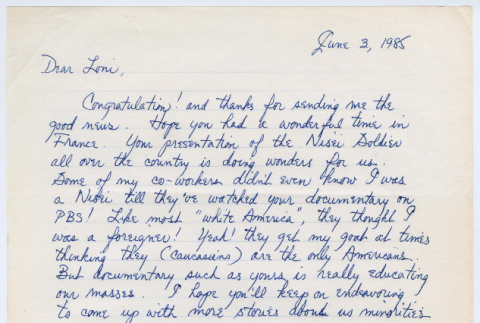 June 3, 1985
Dear Loni,
Congratulation! and thanks for sending me the
good news. Hope you had a wonderful time in
France. Your presentation of the Nisei Soldier
all over the country is doing wonders for us.
Some of my co-workers didn't even know I was
a Nisei till they've watched your documentary on
PBS! Like most "white America", they thought I
was a foreigner! Yeah! they get my goat at times
thinking they (caucasians) are the only Americans.
But documentary such as yours is really educating
our masses. I hope you'll keep on endeavouring
to come up with more stories about us minorities